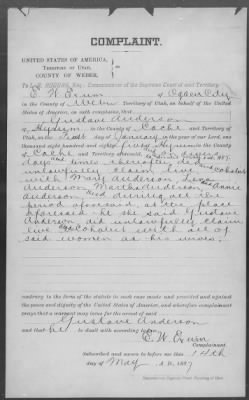 COMPLAINT.
UNITED STATES OF AMERICA,
TERRITORY OF UTAH,
COUNTY OF WEBER.
To L. R. ROGERS, Esq., Commissioner of the Supreme Court of said Territory
E. W. Exum of Ogden City
in the County of Weber Territory of Utah, on behalf of the United
States of America, on oath complains, that
Gustave Anderson
of Hyrum in the County of Cache and Territory of
Utah, on the first day of January in the year of our Lord, one
thousand eight hundred and eighty- four Hyrum in the County
of Cache and Territory aforesaid, and on divers
days and times thereafter
unlawfully claim live and cohabit
with Mary Anderson, Lena
Anderson, Martha Anderson and Annie
Anderson, and during all the
period aforesaid, at the place
aforesaid he the said Gustave
Anderson did unlawfully claim
live and cohabit with all of
said women as his wives.
contrary to the form of the statute in such case made and provided and against
the peace and dignity of the United States of America, and wherefore complainant
prays that a warrant may issue for the arrest of said
Gustave Anderson
and that he be dealt with according to law.
E. W. Exum
Complainant.
Subscribed and sworn to before me this 14th
day of May A. D., 1887